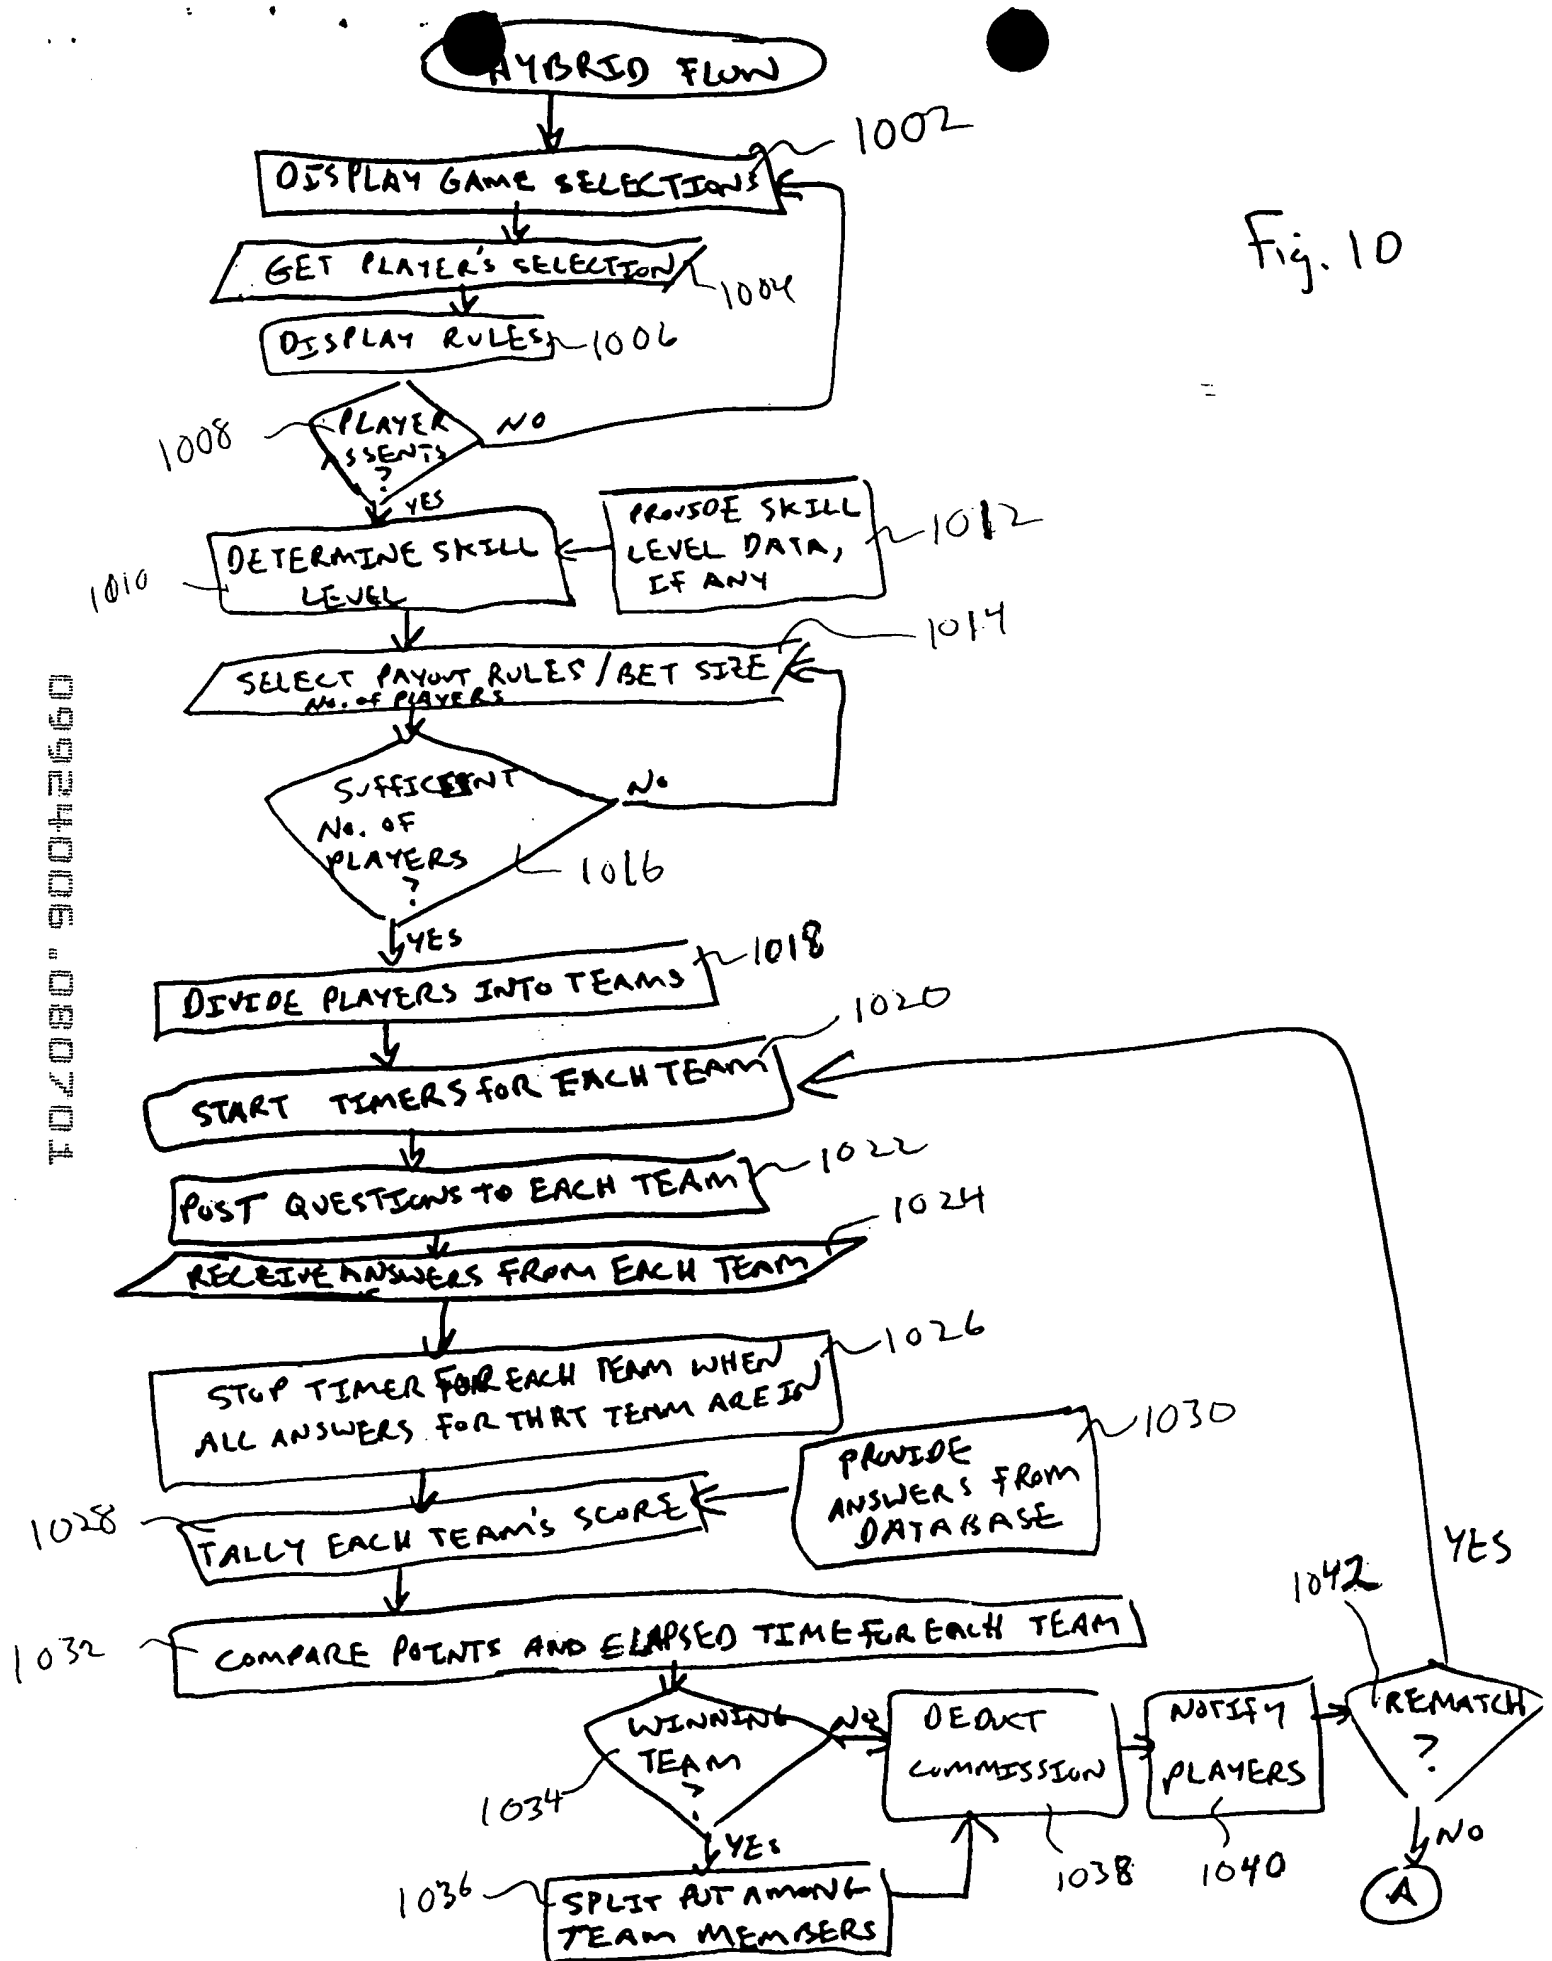 HYBRID FLOW
1002
DISPLAY GAME SELECTIONS
Fig. 10
GET PLAYER'S SELECTION
1004
DISPLAY RULES
1006
1008
PLAYER
ASSENTS
?
NO
YES
PROVIDE SKILL
LEVEL DATA,
IF ANY
1012
DETERMINE SKILL
LEVEL
1010
1014
SELECT PAYOUT RULES / BET SIZE
No. of PLAYERS
SUFFICIENT
No. OF
PLAYERS
?
No
1016
YES
1018
DIVIDE PLAYERS INTO TEAMS
1020
START TIMERS FOR EACH TEAM
1022
POST QUESTIONS TO EACH TEAM
1024
RECEIVE ANSWERS FROM EACH TEAM
1026
STOP TIMER FOR EACH TEAM WHEN
ALL ANSWERS FOR THAT TEAM ARE IN
1030
PROVIDE
ANSWERS FROM
DATABASE
1028
TALLY EACH TEAM'S SCORE
YES
1042
1032
COMPARE POINTS AND ELAPSED TIME FOR EACH TEAM
WINNING
TEAM
?
NO
1034
DEDUCT
COMMISSION
1038
NOTIFY
PLAYERS
1040
REMATCH
?
YES
NO
A
1036
SPLIT POT AMONG
TEAM MEMBERS
09924006.080701